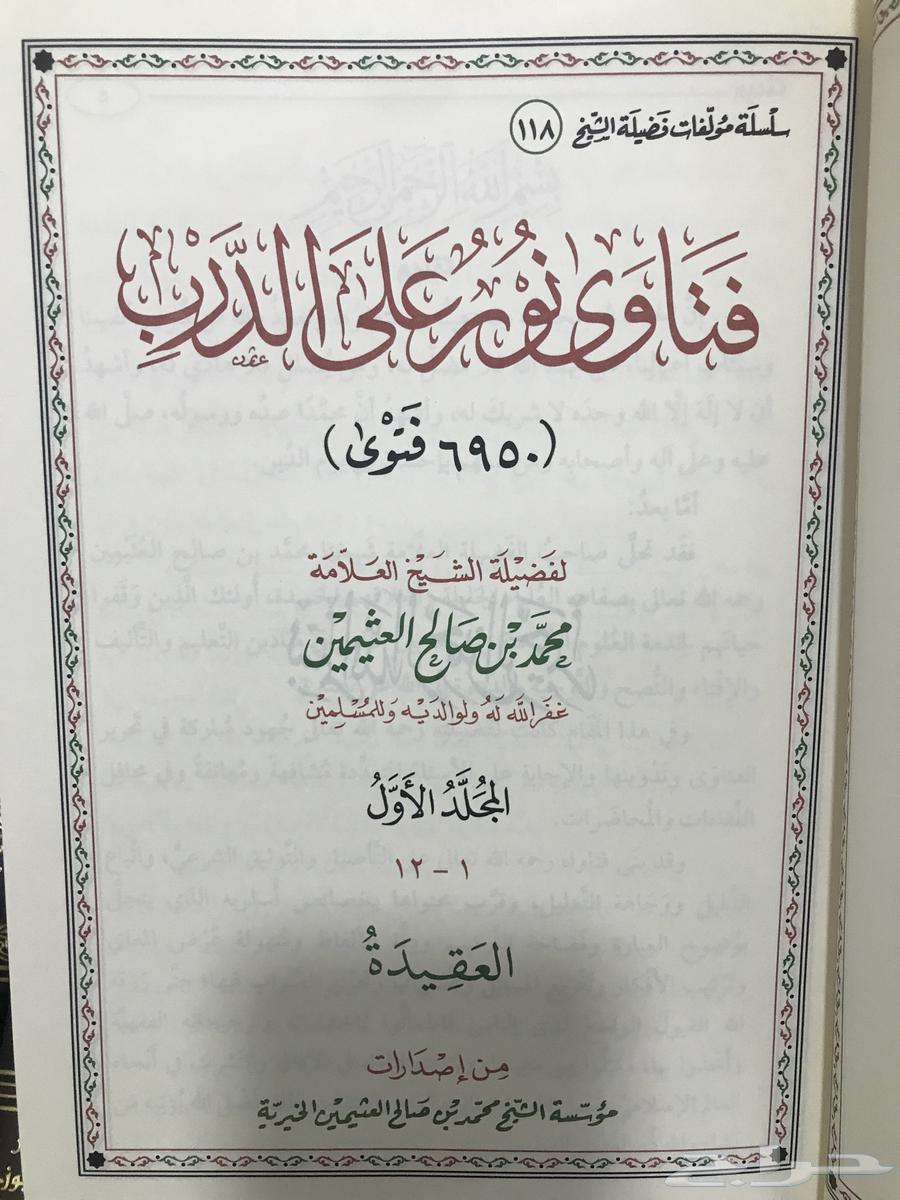 سلسلة مؤلفات فضيلة الشيخ (١١٨)
فَتَاوَى نُورٌ عَلَى الدَّرْبِ
(٦٩٥٠ فَتْوَىٰ)
لفَضيْلَة الشَّيْخ العَلَّامَة
محمَّد بْن صَالح العثيمين
غفَر اللَّه لَهُ ولوَالديْه وَللمُسْلِمِين
المُجَلَّدُ الأَوَّلُ
١ - ١٢
العَقِيدَةُ
مِن إصْدَارات
مؤسّسة الشيخ محمّد بن صَالح العثيمين الخيرية
حراج